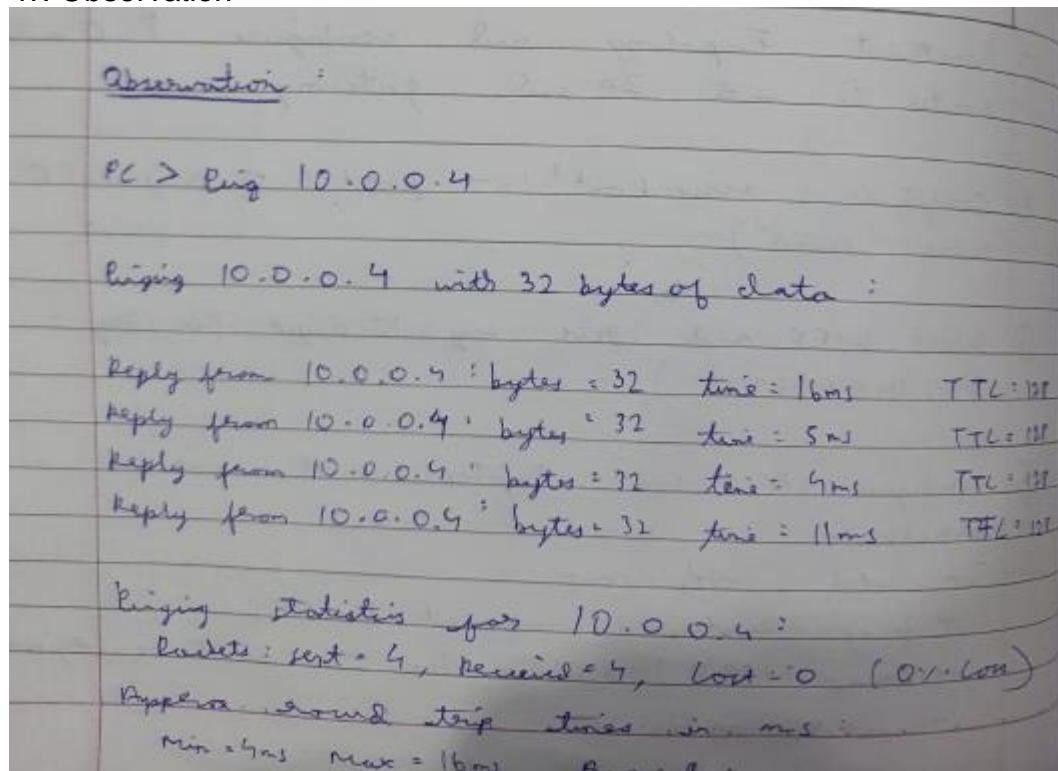 Observation :
PC > Ping 10.0.0.4
Pinging 10.0.0.4 with 32 bytes of data :
Reply from 10.0.0.4 : bytes = 32 time = 16ms TTL = 128
Reply from 10.0.0.4 : bytes = 32 time = 5ms TTL = 128
Reply from 10.0.0.4 : bytes = 32 time = 4ms TTL = 128
Reply from 10.0.0.4 : bytes = 32 time = 11ms TTL = 128
Pinging statistics for 10.0.0.4 :
Packets : sent = 4, Received = 4, Lost = 0 (0% loss)
Approx round trip times in ms :
Min = 4ms Max = 16ms